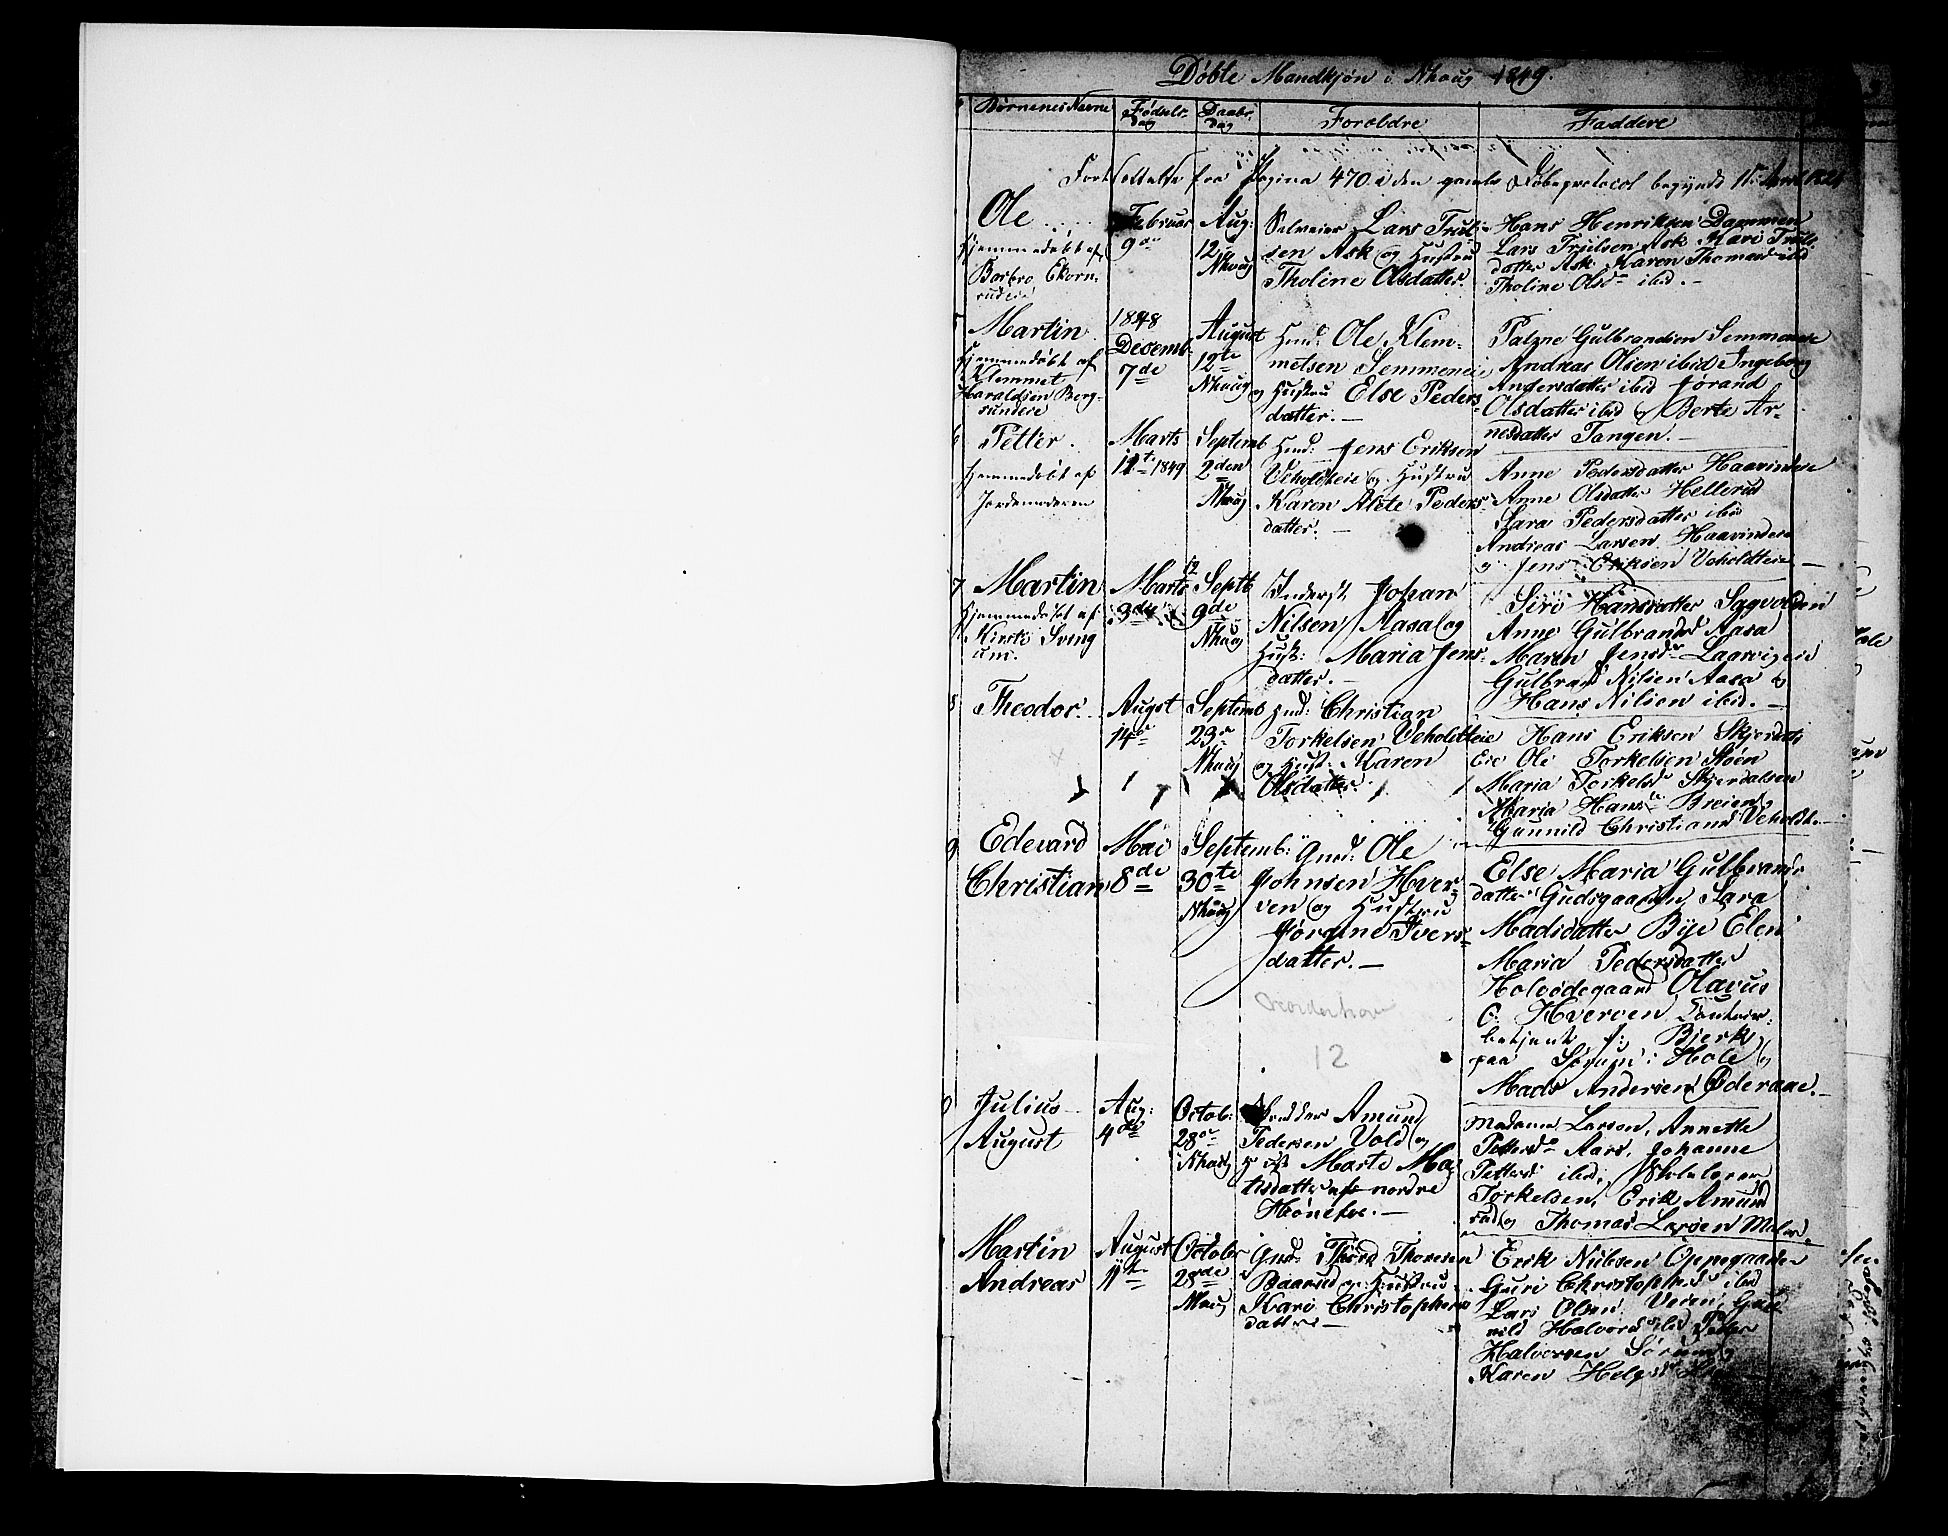 Døbte Mandkjøn i Nhoug 1849.
Børnenes Navne Fødsels- dag Daabs- dag Forældre Faddere
Fortsættelse fra Pagina 470 i den gamle Døbeprotocol begyndt
Ole
Hjemmedøbt af
Barbro Ekorn-
rudeie
Februar
9de
Aug:
12te
Nhoug
Selveier Lars Trul-
sen Ask og Hustru
Tholine Olsdatter.
Hans Henriksen Dammen
Lars Trulsen Ask Kari Truls-
datter Ask Karen Thomasd ibid
Tholine Olsdr ibid. -
Martin
Hjemmedøbt af
Klemmet
Haraldsen Berg-
sundeie
1848
Decemb.
7de
August
12te
Nhoug
Huusd: Ole Klem-
metsen Semmeneie
og Hustru Else Peders-
datter. -
Palne Gulbrandsen Semmeneie
Andreas Olsen ibid Ingeborg
Andersdatter ibid Jorand
Olsdatter ibid og Berte Ar-
nesdatter Tangen. -
6
Petter.
Hjemmedøbt af
Jordemoderen
Marts
12te 1849
Septemb
2den
Nhoug
Huusd: Jens Eriksen
Veholdteie og Hustru
Karen Alete Peders-
datter. -
Anne Pedersdatter Haavindeie
Anne Olsdatter Hellerud
Sara Pedersdatter ibid
Andreas Larsen Haavindeie
og Jens Eriksen Veholdteie -
7
Martin
Hjemmedøbt af
Kirsti Sving
um.
Marts 12
Septb
9de
Nhoug
Inderst Johan
Nilsen Aasa og
Hust: Maria Jens-
datter. -
Siri Hansdatter Sagvolden
Anne Gulbrandsd Aasa
Maren Jensdr Laarvigeie
Gulbrand Nilsen Aasa og
Hans Nilsen ibid. -
8
Theodor
Augst
14de
Septemb
23de
Nhoug
Huusd: Christian
Torkelsen Veholdteie
og Hust: Karen
Olsdatter
Hans Eriksen Skjerdals
Eie Ole Torkelsen Støen
Maria Torkelsdr Skjerdalsen
Maria Hansdr Breien og
Gunnild Christiansd Veholdt. -
9
Edevard
Christian
Mai
8de
Septemb:
30te
Nhoug
Gmd: Ole
Johnsen Hver-
ven og Hustru
Jørgine Ivers-
datter. -
Else Maria Gulbrands-
datter Gudsgaarden Sara
Madsdatter Bye Elen
Maria Pedersdatter
Holvødegaard Olavus
O. Hverven Contoir-
betjent Bjerk
paa Sørum i Hole og
Mads Andersen Oderaae. -
Norderhov
12
Julius
August
Aug:
4de
Octob:
28de
Nhoug
Amund
Pedersen Vold og
Hust Marte Ma-
tisdatter af nordre
Hønefos. -
Madame Larsen, Annette
Pettersdr Aars, Johanne
Pettersd ibid, Skolelærer
Torkelsen, Erik Amund
rud og Thomas Larsen Moler.
Martin
Andreas
August
11te
October
28de
Nhoug
Gmd: Thord Thoresen
Baarud og Hustru
Kari Christophers-
datter -
Erik Nubsen Oppegaarden
Guri Christophersdr ibid
Lars Olsen Veien, Gun-
nild Halvorsd ibid Peder
Halvorsen Sørum og
Karen Helgesdr